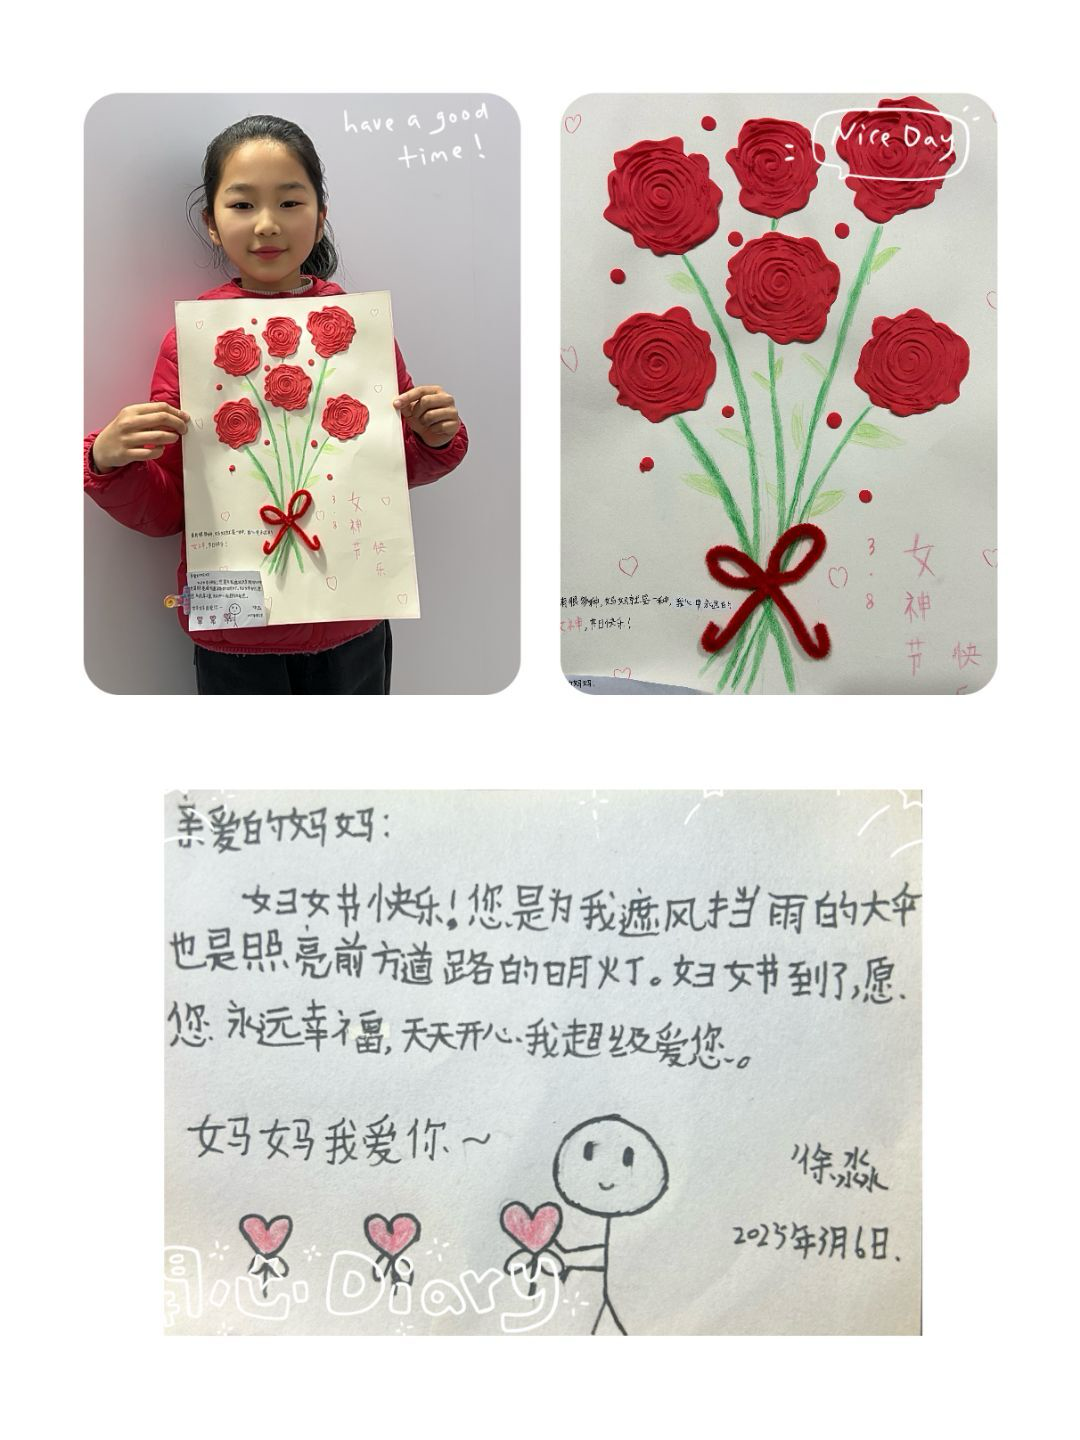 have a good
time!
Nice Day
3.8
女神节
快乐
女神,节日快乐!
3.8
女神节
快
亲爱的妈妈:
妇女节快乐!您是为我遮风挡雨的大伞
也是照亮前方道路的明灯。妇女节到了,愿
您永远幸福,天天开心.我超级爱您。
妈妈我爱你~
徐淼
2025年3月6日.
开心·Diary